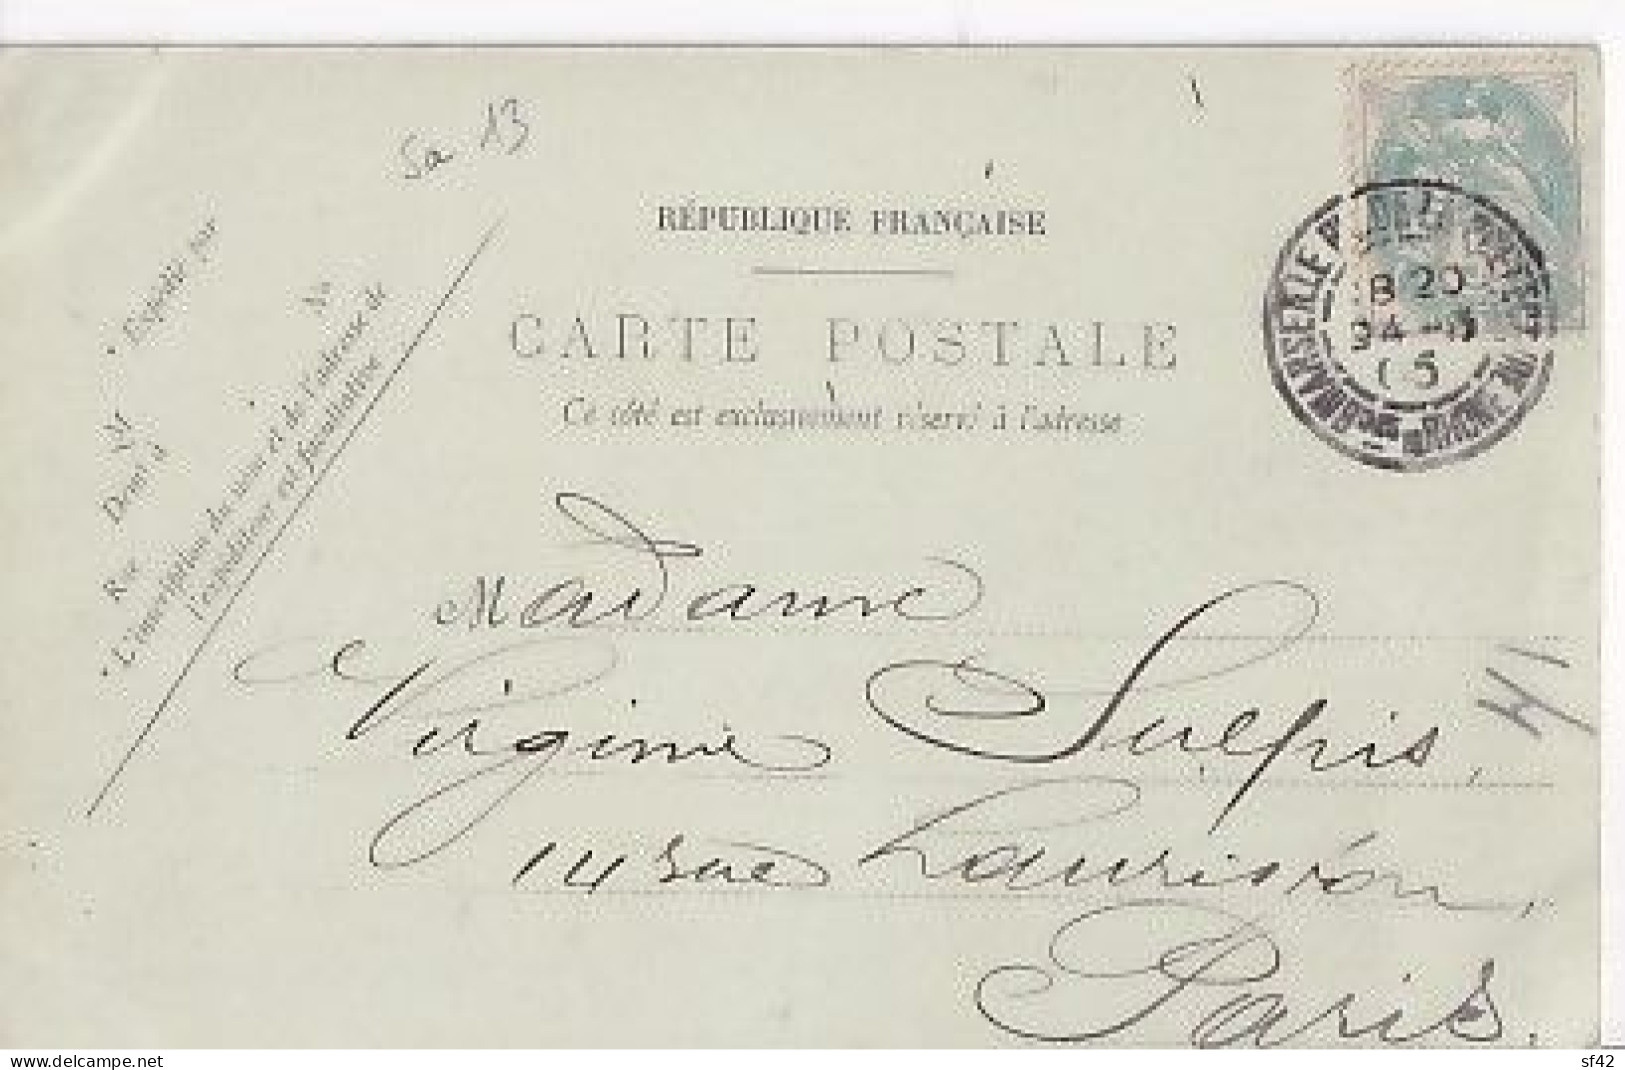 Sa 13
RÉPUBLIQUE FRANÇAISE
CARTE POSTALE
Ce côté est exclusivement réservé à l'adresse
Expédié par
M
Dem' à
Rue
N°
L'inscription du nom et de l'adresse de
l'expéditeur est facultative
MARSEILLE
BOUCHES DU RHONE
8 20
05
Madame
Virginie Sulpis,
14 rue Lauriston,
Paris.
sf42